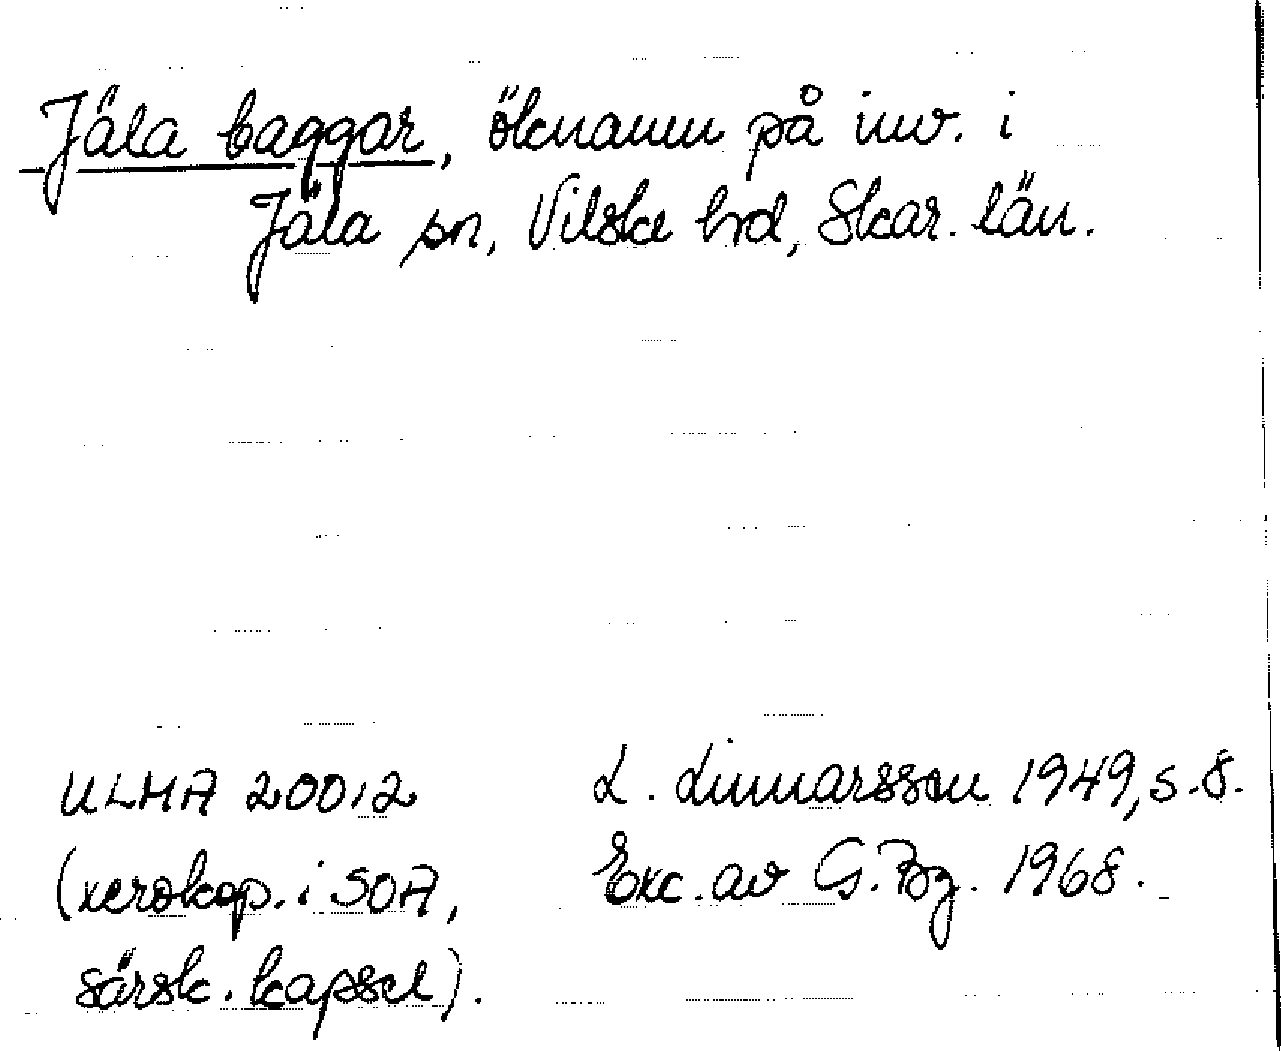 Jäla baggar, öknamn på inv. i
Jäla sn, Vilske hrd, Skar. län.
ULMA 20012
(xerokop. i SOA,
särsk. kapsel).
L. Linnarsson 1949, s. 8.
Exc. av G. Bg. 1968.